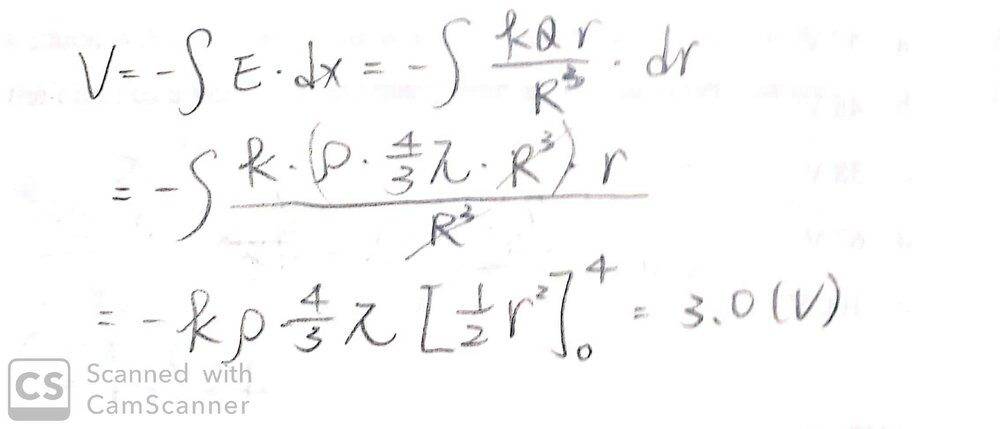 V = -∫ E · dx = -∫ kQr/R³ · dr
= -∫ k·(ρ·4/3 π·R³) r / R³
= -kρ 4/3 π [1/2 r²]₀⁴ = 3.0 (V)
CS Scanned with
CamScanner